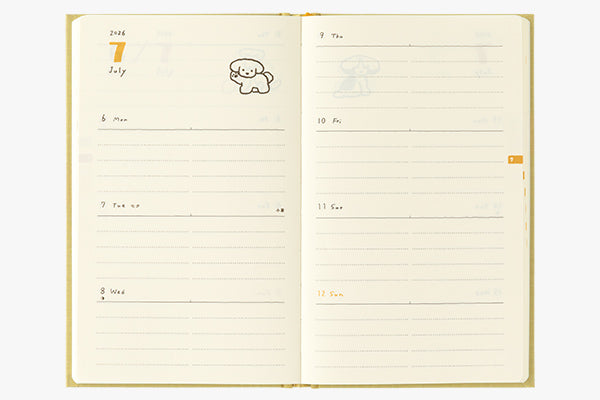 2026
7
July
6 Mon
7 Tue 七夕
小暑
8 Wed
9 Thu
10 Fri
11 Sat
12 Sun
7